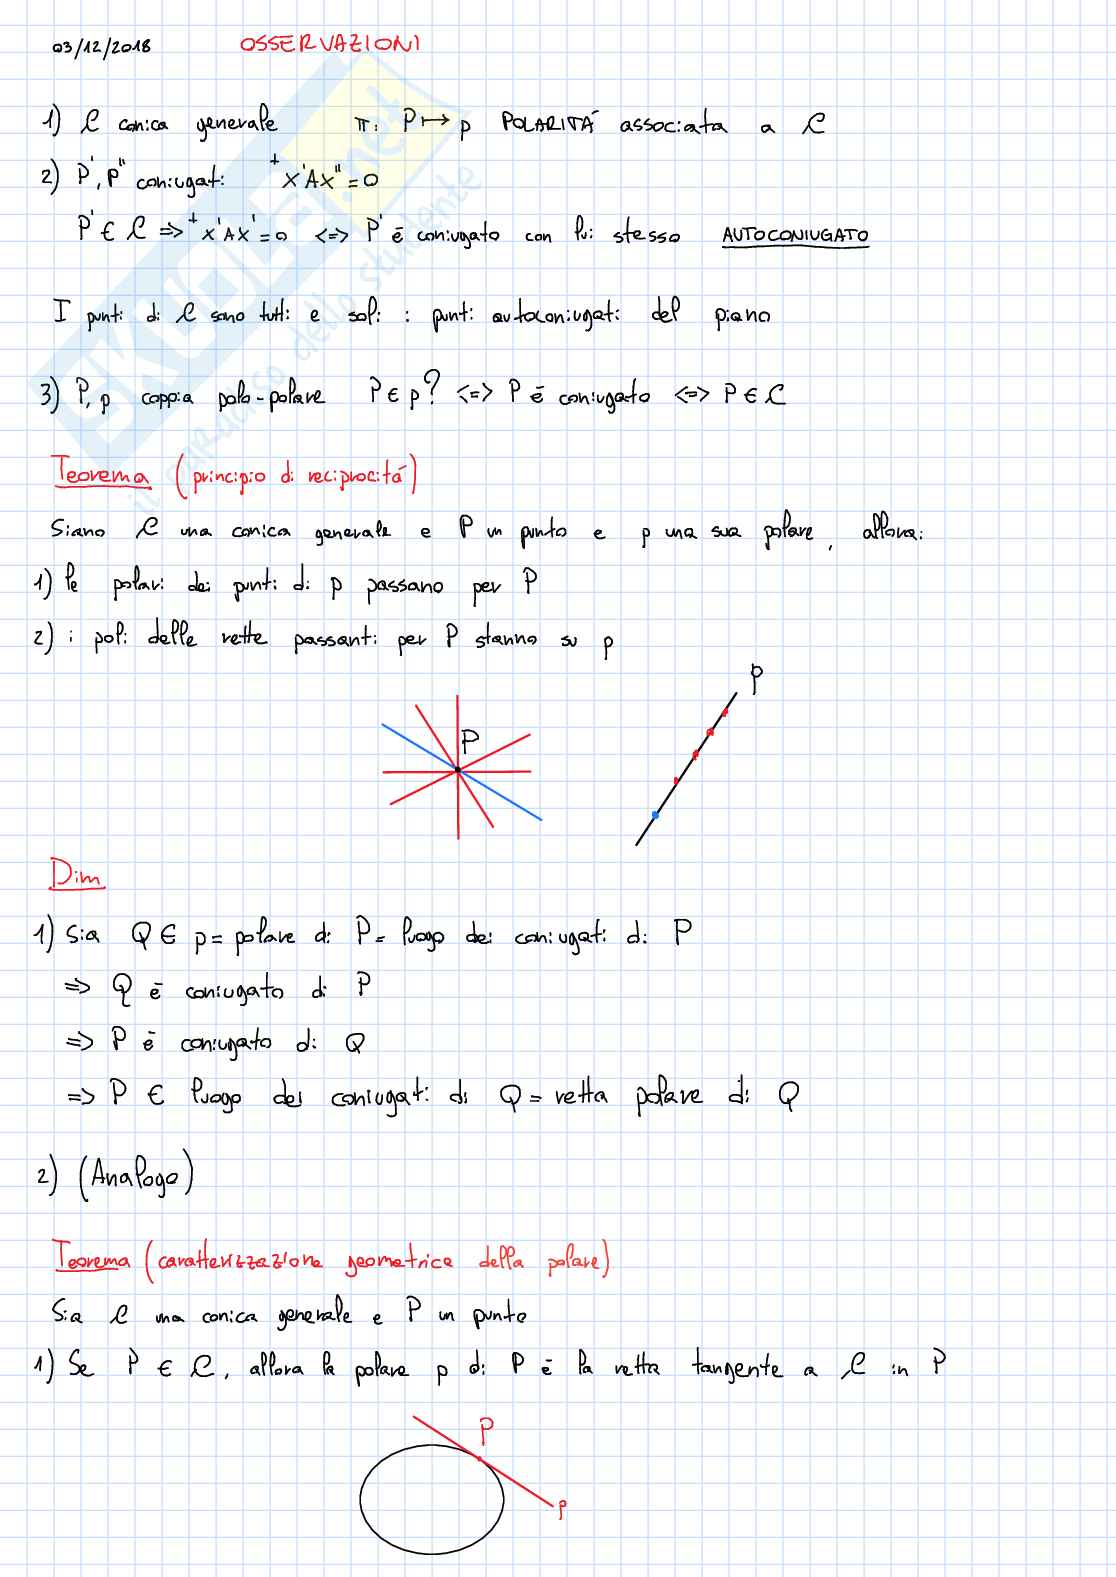 03/12/2018 OSSERVAZIONI
1) C conica generale π: P ↦ p POLARITÁ associata a C
2) P', P" coniugati: ᵗX'AX" = 0
P' ∈ C => ᵗX'AX' = 0 <=> P' é coniugato con lui stesso AUTOCONIUGATO
I punti di C sono tutti e soli i punti autoconiugati del piano
3) P, p coppia polo-polare P ∈ p? <=> P é coniugato <=> P ∈ C
Teorema (principio di reciprocitá)
Siano C una conica generale e P un punto e p una sua polare, allora:
1) le polari dei punti di p passano per P
2) i poli delle rette passanti per P stanno su p
P
p
Dim
1) Sia Q ∈ p = polare di P = luogo dei coniugati di P
=> Q é coniugato di P
=> P é coniugato di Q
=> P ∈ luogo dei coniugati di Q = retta polare di Q
2) (Analogo)
Teorema (caratterizzazione geometrica della polare)
Sia C una conica generale e P un punto
1) Se P ∈ C, allora la polare p di P é la retta tangente a C in P
P
p
SKUOLA.net
il paradiso dello studente